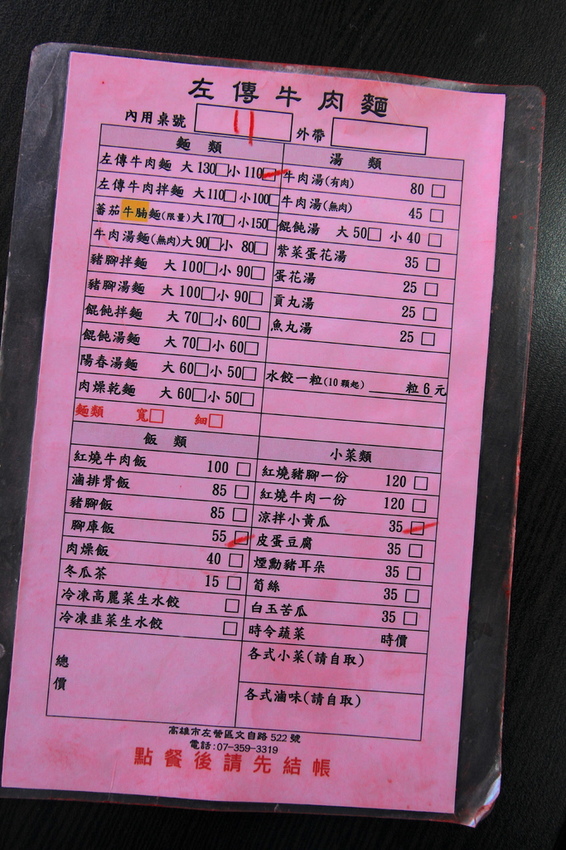 左傳牛肉麵
內用桌號 11 外帶
麵類
左傳牛肉麵 大130□小110□
左傳牛肉拌麵 大110□小100□
蕃茄牛腩麵(限量)大170□小150□
牛肉湯麵(無肉)大90□小80□
豬腳拌麵 大100□小90□
豬腳湯麵 大100□小90□
餛飩拌麵 大70□小60□
餛飩湯麵 大70□小60□
陽春湯麵 大60□小50□
肉燥乾麵 大60□小50□
麵類 寬□ 細□
湯類
牛肉湯(有肉) 80□
牛肉湯(無肉) 45□
餛飩湯 大50□小40□
紫菜蛋花湯 35□
蛋花湯 25□
貢丸湯 25□
魚丸湯 25□
水餃一粒(10顆起) 粒6元
飯類
紅燒牛肉飯 100□
滷排骨飯 85□
豬腳飯 85□
腳庫飯 55□
肉燥飯 40□
冬瓜茶 15□
冷凍高麗菜生水餃 □
冷凍韭菜生水餃 □
總價
小菜類
紅燒豬腳一份 120□
紅燒牛肉一份 120□
涼拌小黃瓜 35□
皮蛋豆腐 35□
煙勳豬耳朵 35□
筍絲 35□
白玉苦瓜 35□
時令蔬菜 時價
各式小菜(請自取)
各式滷味(請自取)
高雄市左營區文自路522號
電話:07-359-3319
點餐後請先結帳